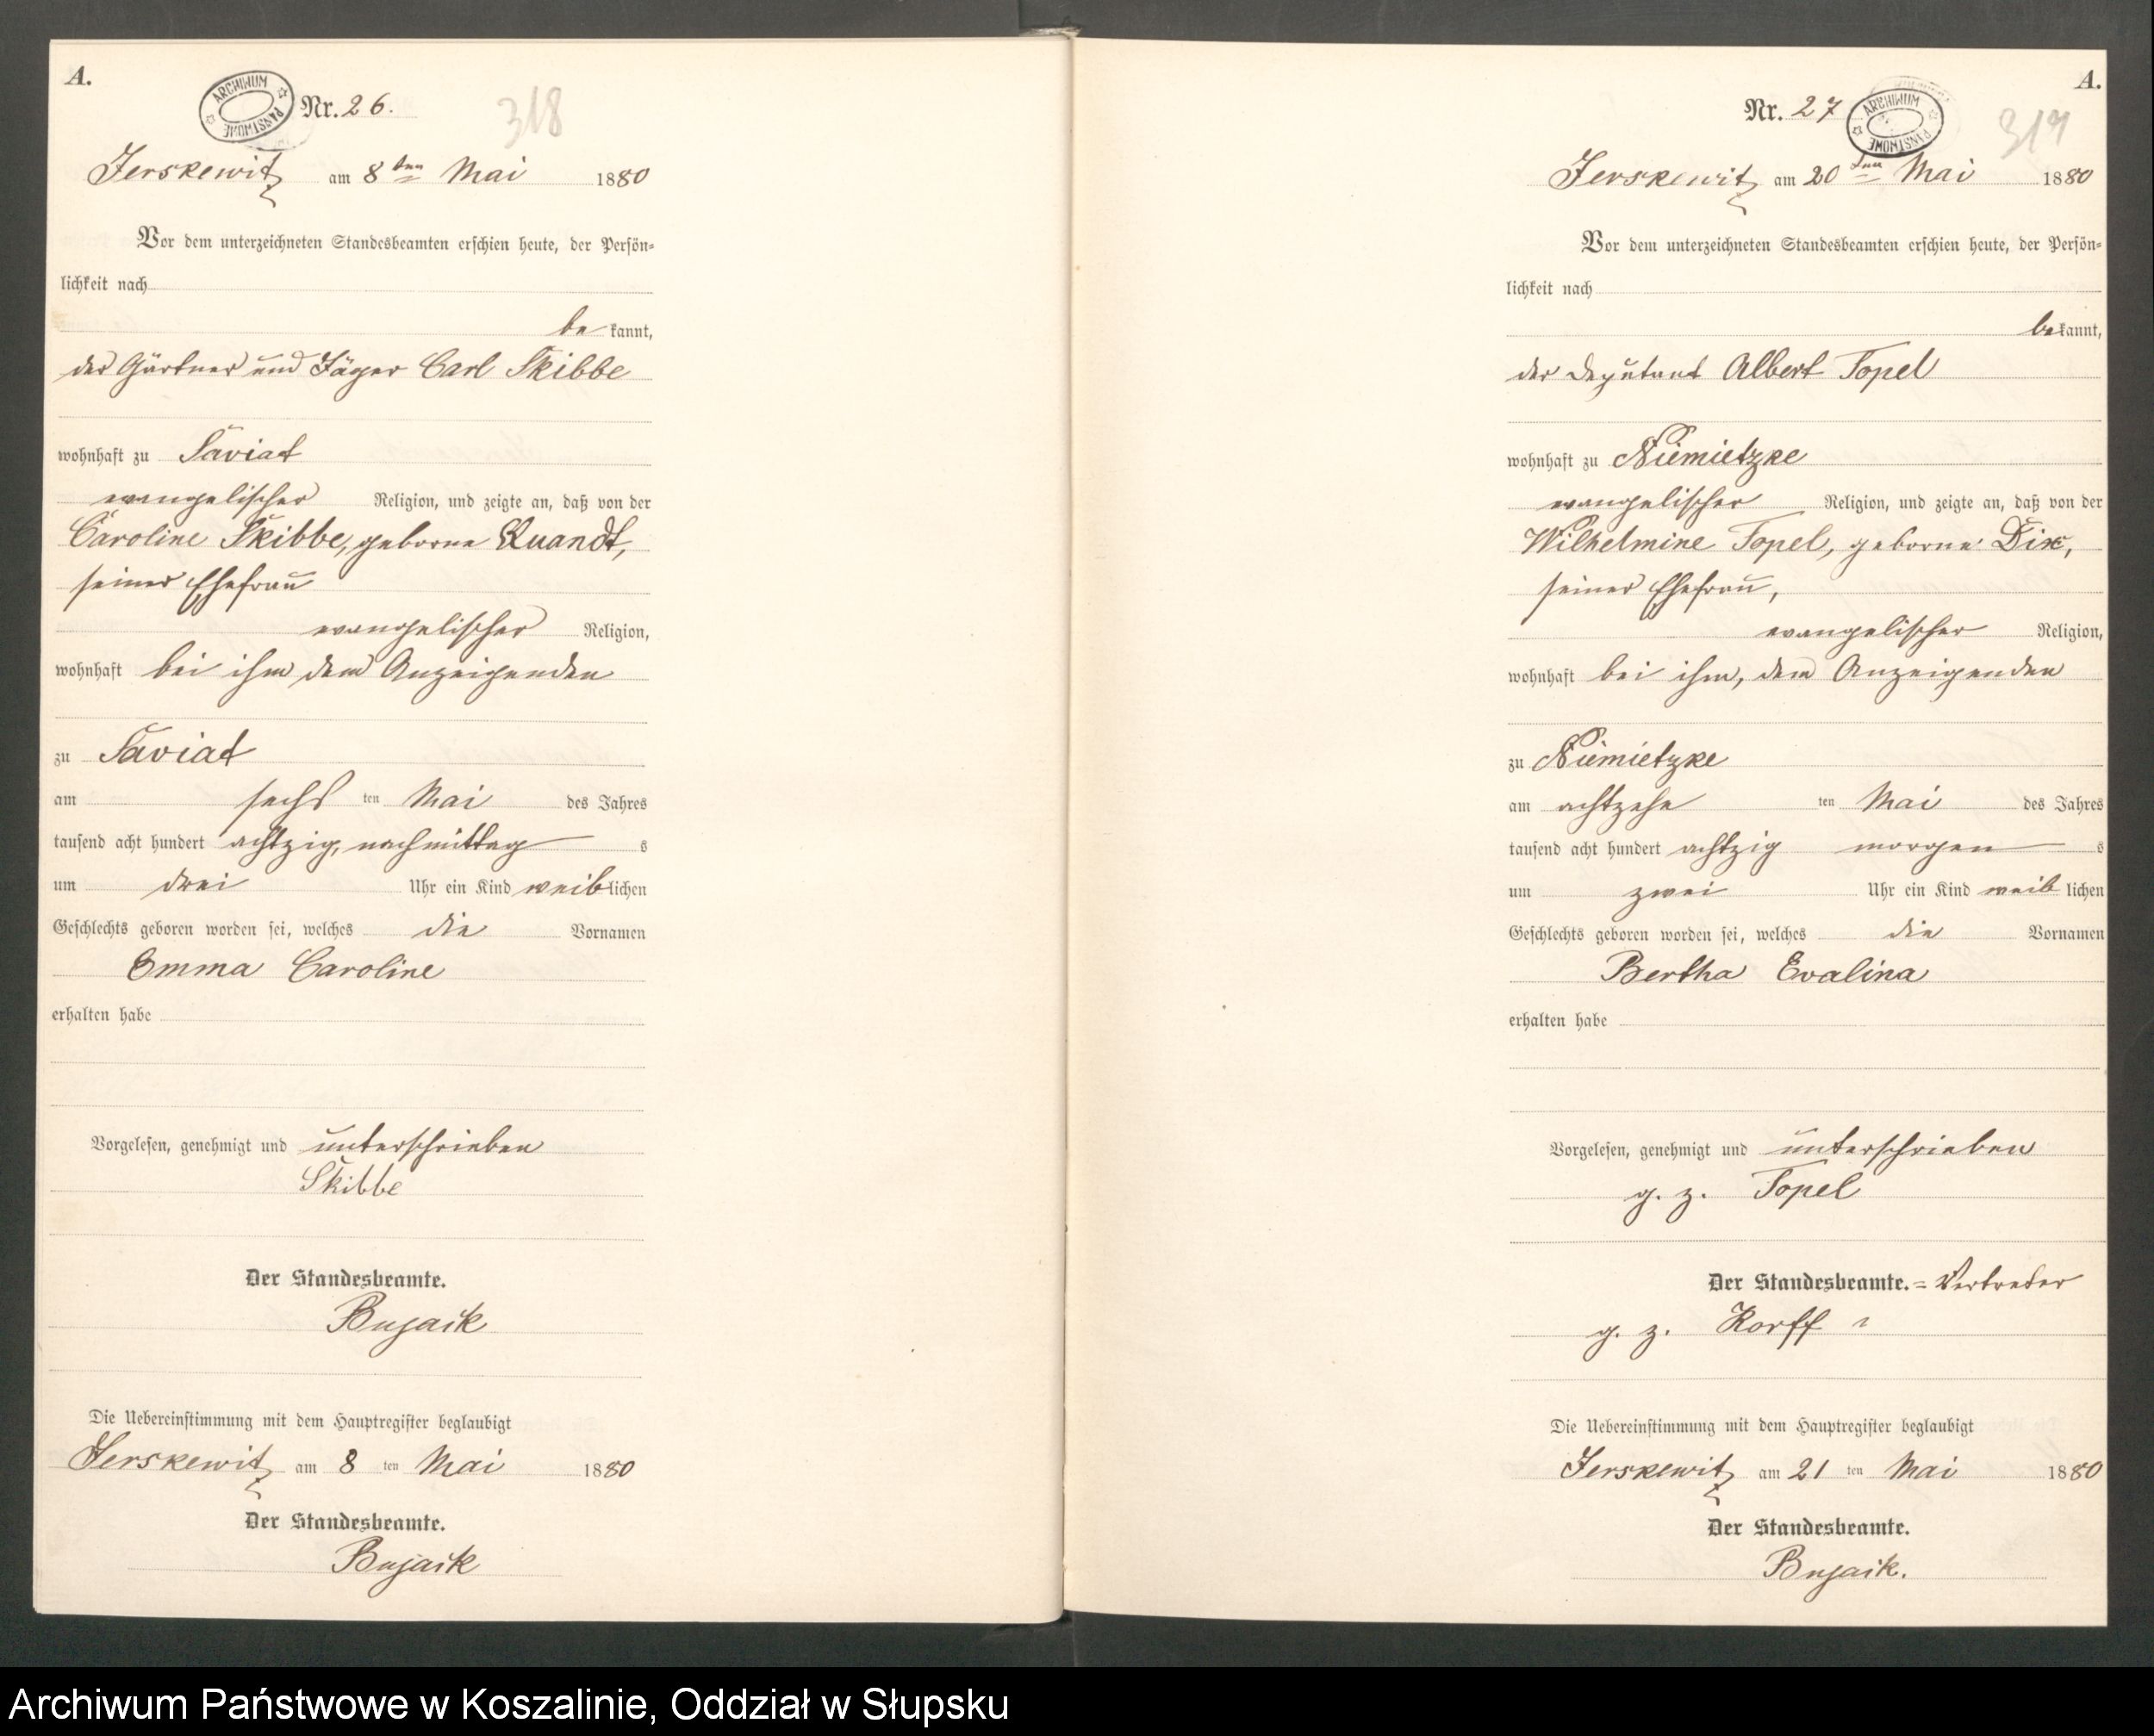 A.
ARCHIWUM PAŃSTWOWE
Nr. 26.
318
Jerskewitz am 8ten Mai 1880
Vor dem unterzeichneten Standesbeamten erschien heute, der Persön=
lichkeit nach
be kannt,
der Gärtner und Jäger Carl Skibbe
wohnhaft zu Saviat
evangelischer Religion, und zeigte an, daß von der
Caroline Skibbe, geborne Quandt,
seiner Ehefrau
evangelischer Religion,
wohnhaft bei ihm dem Anzeigenden
zu Saviat
am sechs ten Mai des Jahres
tausend acht hundert achtzig, nachmittag s
um drei Uhr ein Kind weiblichen
Geschlechts geboren worden sei, welches die Vornamen
Emma Caroline
erhalten habe
Vorgelesen, genehmigt und unterschrieben
Skibbe
Der Standesbeamte.
Bujack
Die Uebereinstimmung mit dem Hauptregister beglaubigt
Jerskewitz am 8 ten Mai 1880
Der Standesbeamte.
Bujack
A.
Nr. 27
ARCHIWUM PAŃSTWOWE
319
Jerskewitz am 20ten Mai 1880
Vor dem unterzeichneten Standesbeamten erschien heute, der Persön=
lichkeit nach
bekannt,
der Deputant Albert Topel
wohnhaft zu Niemietzke
evangelischer Religion, und zeigte an, daß von der
Wilhelmine Topel, geborne Dix,
seiner Ehefrau,
evangelischer Religion,
wohnhaft bei ihm, dem Anzeigenden
zu Niemietzke
am achtzehn ten Mai des Jahres
tausend acht hundert achtzig morgen s
um zwei Uhr ein Kind weib lichen
Geschlechts geboren worden sei, welches die Vornamen
Bertha Evalina
erhalten habe
Vorgelesen, genehmigt und unterschrieben
g. z. Topel
Der Standesbeamte. = Vertreter
g. z. Korff
Die Uebereinstimmung mit dem Hauptregister beglaubigt
Jerskewitz am 21 ten Mai 1880
Der Standesbeamte.
Bujack.
Archiwum Państwowe w Koszalinie, Oddział w Słupsku